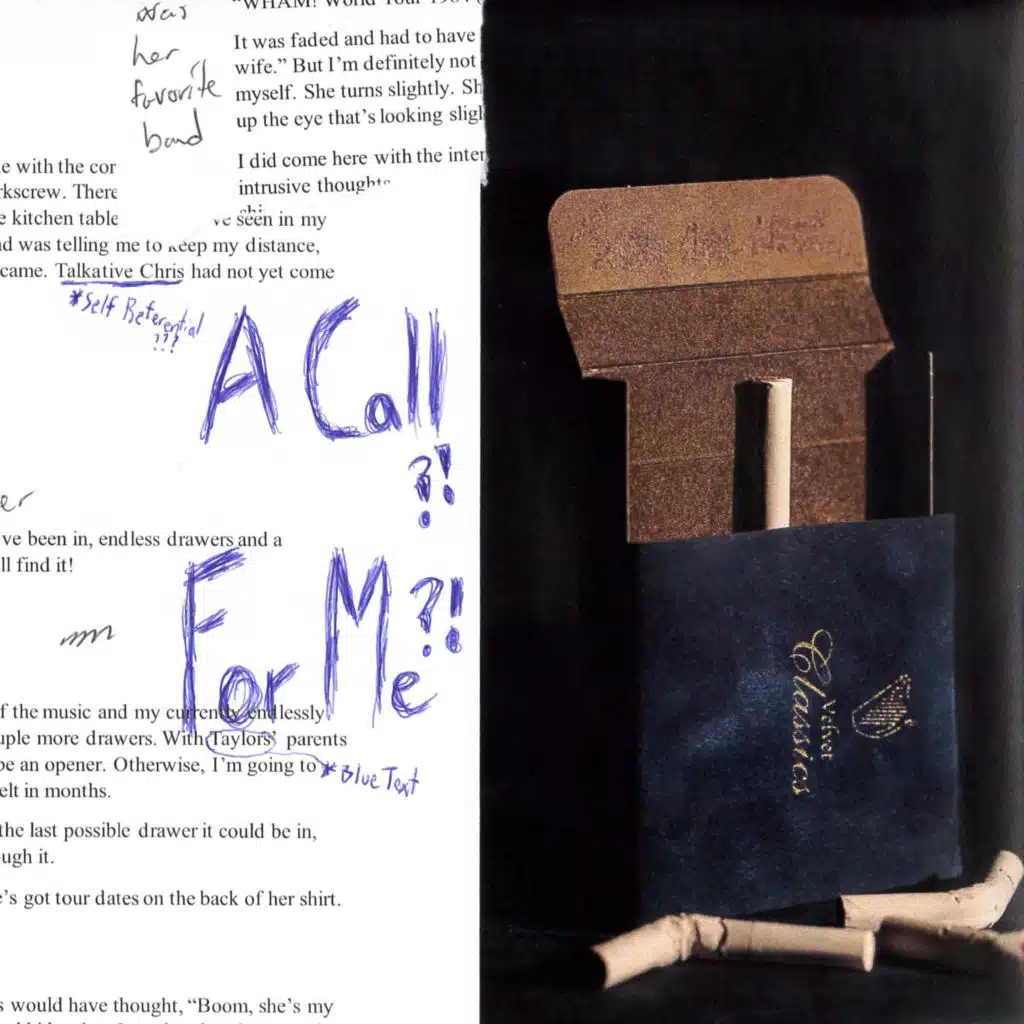 was
her
favorite
band
"WHAM! World Tour 1984
It was faded and had to have
wife." But I'm definitely not
myself. She turns slightly. Sh
up the eye that's looking sligh
I did come here with the inter
intrusive thoughts
e with the cor
rkscrew. There
e kitchen table
ve seen in my
d was telling me to keep my distance,
came. Talkative Chris had not yet come
*Self Referential
???
A Call
?!
er
ve been in, endless drawers and a
ll find it!
For Me?!
f the music and my currently endlessly
uple more drawers. With Taylors' parents
be an opener. Otherwise, I'm going to
*Blue Text
elt in months.
the last possible drawer it could be in,
ugh it.
e's got tour dates on the back of her shirt.
s would have thought, "Boom, she's my
Velvet
Classics